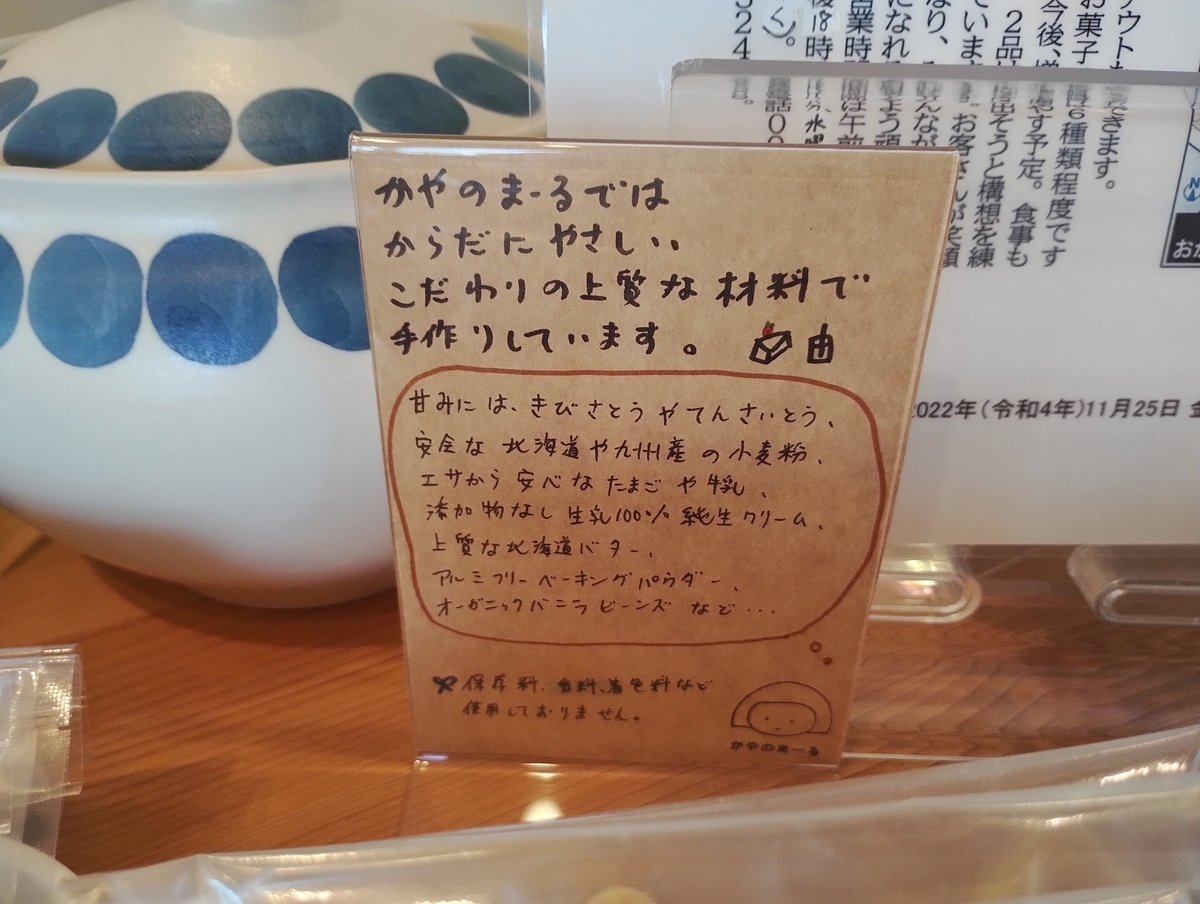 かやのまーるでは
からだにやさしい
こだわりの上質な材料で
手作りしています。
甘みには、きびさとうやてんさいとう、
安全な北海道や九州産の小麦粉、
エサから安心なたまごや牛乳、
添加物なし生乳100%純生クリーム、
上質な北海道バター、
アルミフリーベーキングパウダー、
オーガニックバニラビーンズなど...
保存料、香料、着色料など
使用しておりません。
かやのまーる
できます。
6種類程度です
やす予定。食事も
出そうと構想を練
2022年(令和4年)11月25日